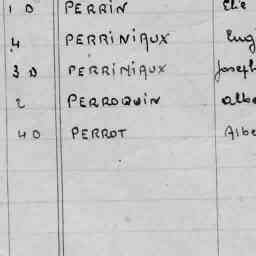 1 D PERRIN Elie
4 PERRINIAUX Eug
3 D PERRINIAUX Joseph
2 PERROQUIN albe
4 D PERROT Albe